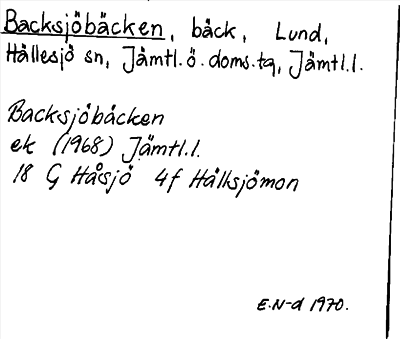 Backsjöbäcken, bäck, Lund,
Hällesjö sn, Jämtl. ö. doms.tg, Jämtl.l.
Backsjöbäcken
ek (1968) Jämtl.l.
18 G Håsjö 4f Hällsjömon
E.N-d 1970.